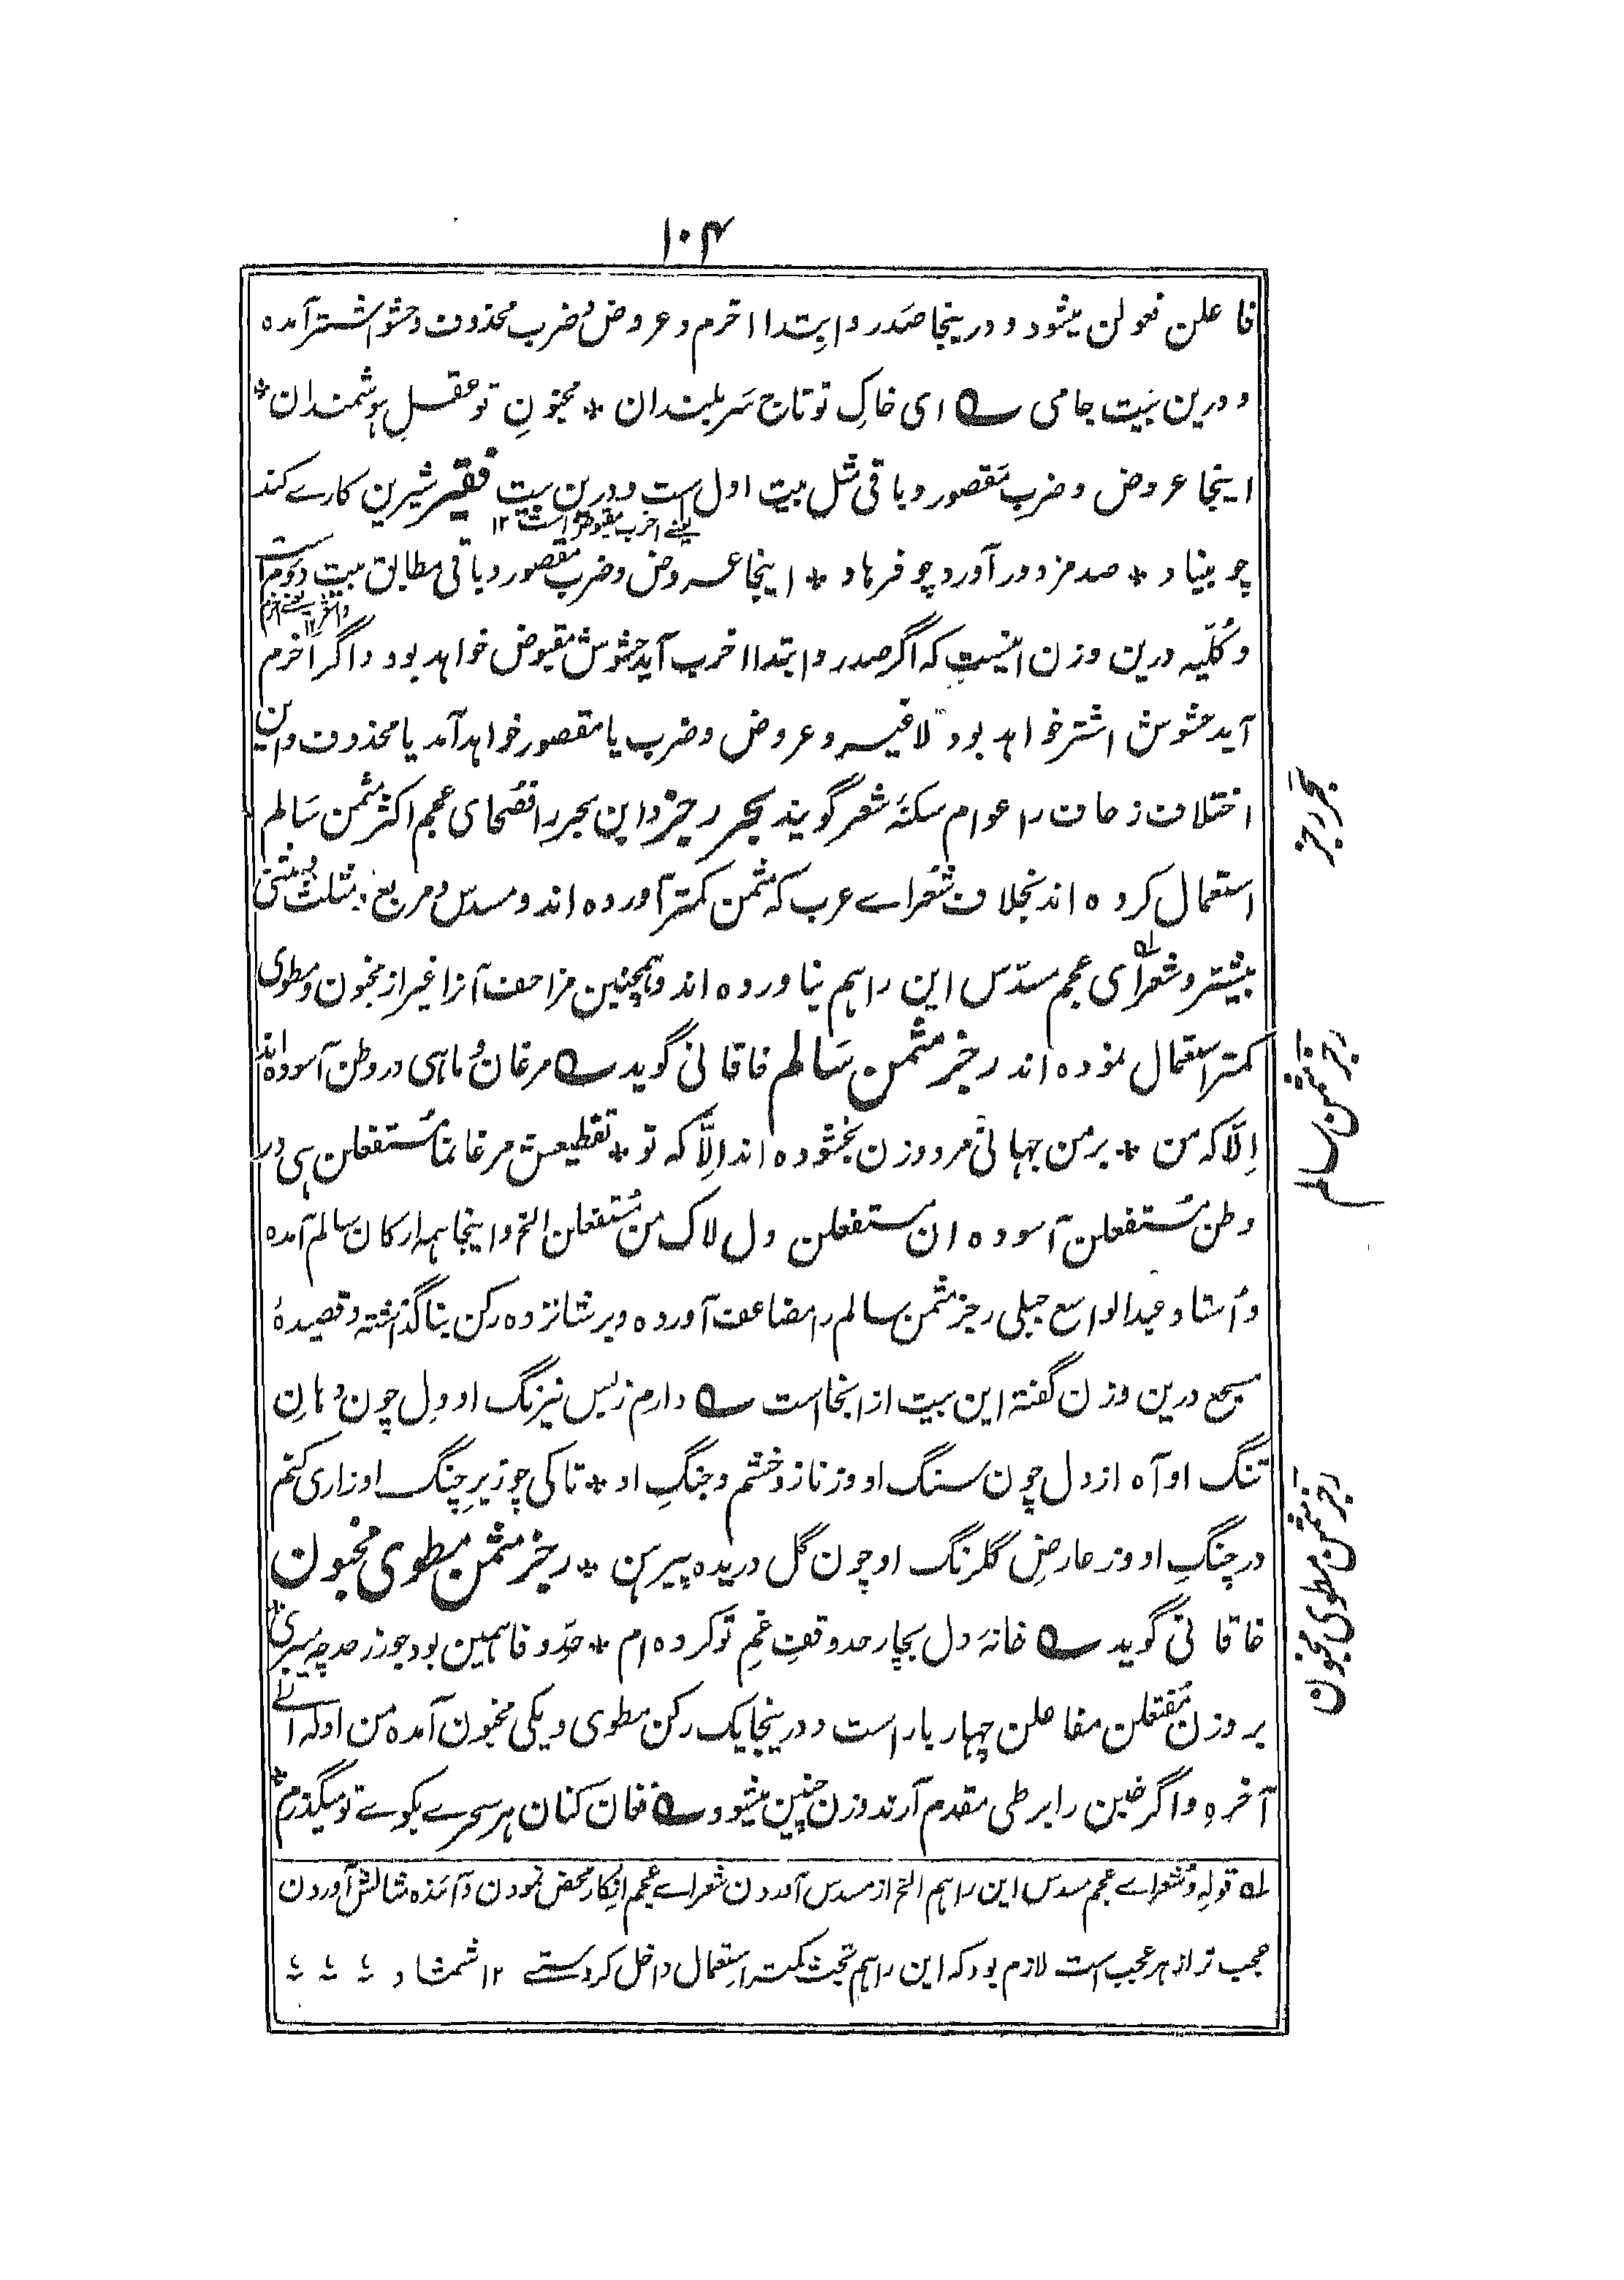 ۱۰۴
فاعلن فعولن میشود و درینجا صَدر و اِبتدا اخرم و عروض وُ ضرب محذوف و حشو اشتر آمده
و درین بَیت جامی ؎ ای خاکِ تو تاج سَر بلندان * مجنونِ تو عقلِ ہوشمندان *
اینجا عروض و ضربِ مَقصور و باقی مثل بیت اول است و درین بیت فقیر شیرین کارے کند
یعنے اخرب مقبوض است ۱۲
چو بینا د * صد مزدور آورد چو فرہاد * اینجا عروض و ضرب مقصور و باقی مطابق بیت دوم است
و کُلّیہ درین وزن اینست کہ اگر صدر و ابتدا اخرب آید حشوش مقبوض خواہد بود و اگر اخرم
آید حشوش اشتر خواہد بود لاغیر و عروض و ضرب یا مقصور خواہد آمد یا محذوف و این
اختلاف زحاف را عوام سکتۂ شعر گویند بحر رجز و این بحر را فصحای عجم اکثر مثمن سَالم
استعمال کردہ اند بخلاف شعراے عرب کہ مثمن کمتر آوردہ اند و مسدس و مربع و مثلث و مثنی
بیشتر و شعرا۱ی عجم مسدّس این را ہم نیاوردہ اند و ہمچنین مزاحف آنرا غیر از مخبون و مطوی
کمتر استعمال نمودہ اند رجز مثمن سَالم خاقانی گوید ؎ مرغان وُ ماہی در وطن آسودہ اند
اِلّا کہ من * بر من جہانی مرد و زن بخشودہ اند اِلّا کہ تو * تقطیعش مرغان ما مُستفعلن ہی در
وطن مُستفعلن آسودہ ان مستفعلن دل لاک من مُستفعلن الخ و اینجا ہمہ ارکان سالم آمدہ
و اُستاد عبدالواسع جبلی رجز مثمن سالم را مضاعف آوردہ و بر شانزدہ رکن بنا گذاشتہ و قصیدۂ
مسجع درین وزن گفتہ این بیت از انجا است ؎ دارم ز بس نیرنگ او دل چون دہانِ
تنگ او آہ از دل چون سنگ او وز ناز و خشم و جنگِ او * تا کی چو زیرِ چنگ او زاری کنم
در چنگِ او وز عارضِ گلرنگ او چون گل دریدہ پیرہن * رجز مثمن مطوی مخبون
خاقانی گوید ؎ خانۂ دل بچار حد وقفِ غمِ تو کردہ ام * حدِّ وفا ہمین بود جور ز حد چہ میبری *
بر وزن مُفتعلن مفاعلن چہار بار است و درینجا یک رکن مطوی و یکی مخبون آمدہ من اولہ الے
آخرہ و اگر خبن را بر طی مقدم آرند وزن چنین میشود ؎ فغان کنان ہر سحرے بکوے تو میگذرم *
۱ قولہ و شعراے عجم مسدس این را ہم الخ از مسدس آوردن شعراے عجم انکار محض نمودن و آئندہ مثالش آوردن
عجب تر از ہر عجب است لازم بود کہ این را ہم تحت کمتر استعمال داخل کردستے ۱۲ شمشاد
بحر رجز
رجز مثمن سالم
رجز مثمن مطوی مخبون